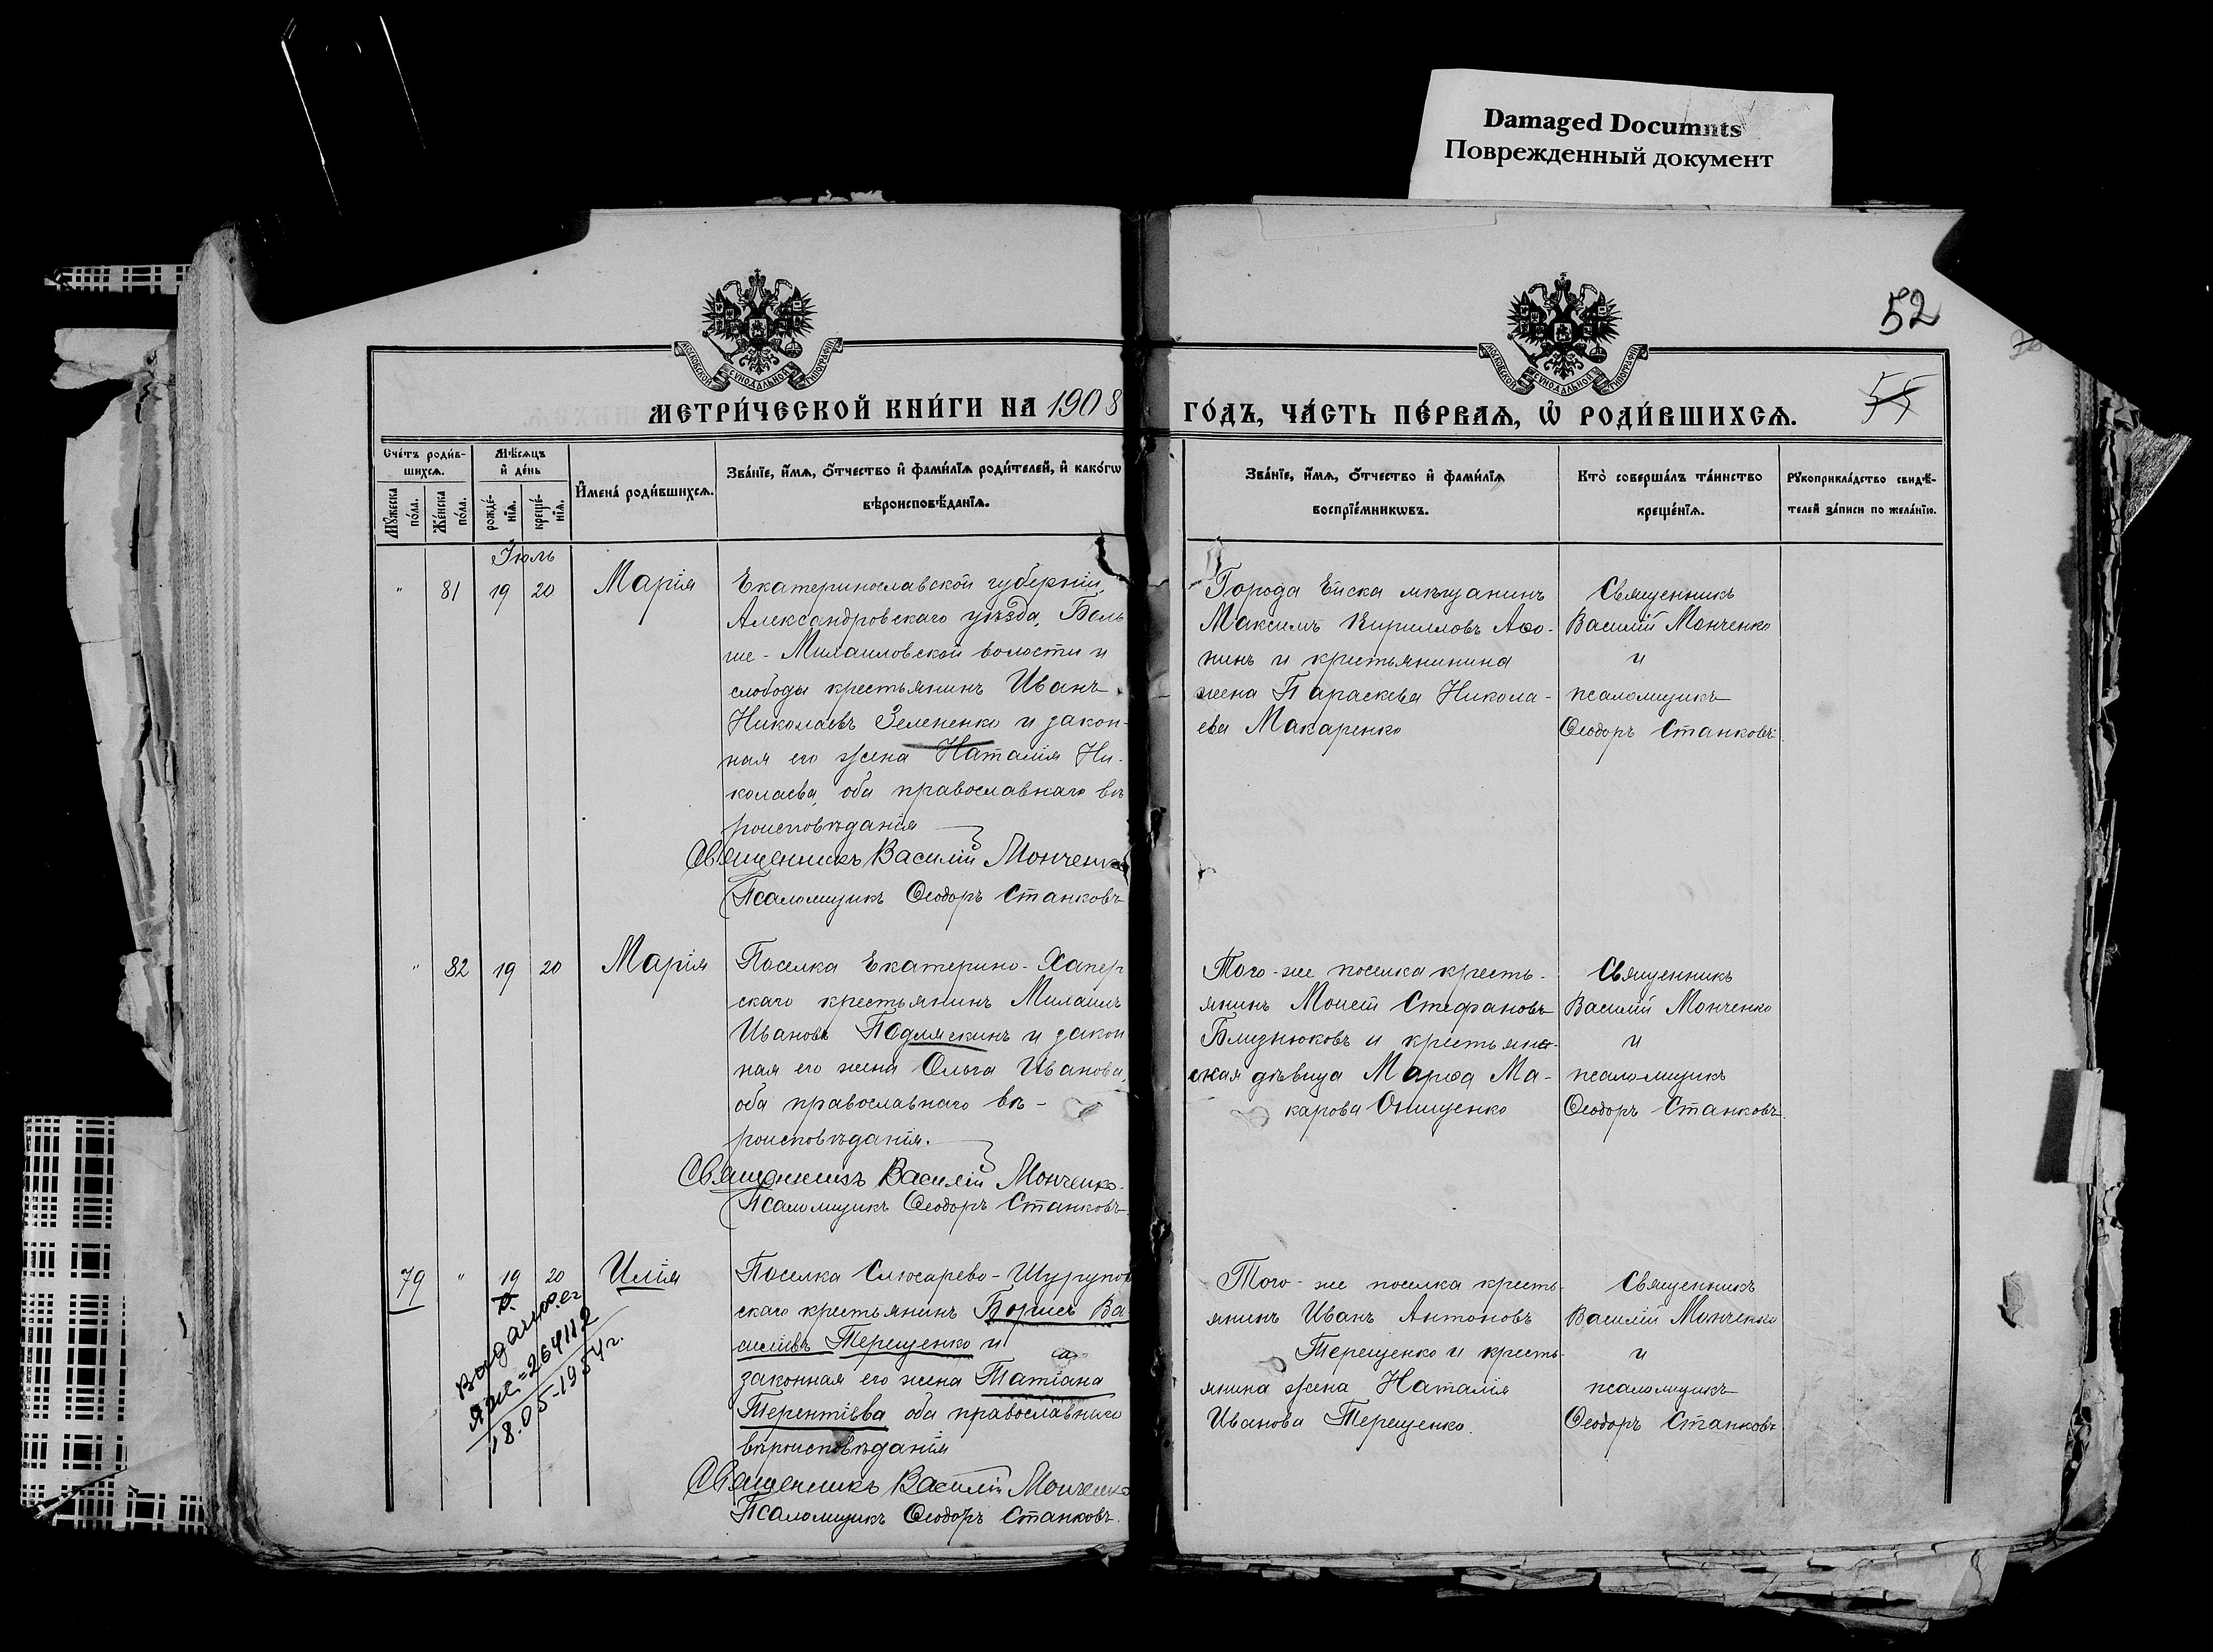 Damaged Documnts
Поврежденный документ
52
55
МЕТРИ́ЧЕСКОЙ КНИ́ГИ НА 1908
ГО́ДЪ, ЧА́СТЬ ПЕ́РВАѦ, Ѽ РОДИ́ВШИХСѦ.
МОСКОВСКОЙ СѴНОДАЛЬНОЙ ТИПОГРАФІИ
МОСКОВСКОЙ СѴНОДАЛЬНОЙ ТИПОГРАФІИ
Сче́тъ роди́в-
шихсѧ.
Мꙋ́жеска по́ла.
Же́нска по́ла.
Мѣ́сѧцъ
и҆ де́нь
рожде́-
нїѧ.
креще́-
нїѧ.
И҆мена̀ роди́вшихсѧ.
Зва́нїе, и҆́мѧ, ѻ҆́тчество и҆ фами́лїѧ роди́телей, и҆ како́гѡ
вѣроисповѣ́данїѧ.
Зва́нїе, и҆́мѧ, ѻ҆́тчество и҆ фами́лїѧ
воспрїе́мникѡвъ.
Кто̀ соверша́лъ та́инство
креще́нїѧ.
Рꙋкоприкла́дство свидѣ́-
телей за́писи по жела́нїю.
Іюль
" 81 19 20 Марія
Екатеринославской губерніи,
Александровскаго уѣзда, Боль
ше-Михаиловской волости и
слободы крестьянинъ Иванъ
Николаевъ Зелененко и закон-
ная его жена Наталія Ни-
колаева, оба православнаго вѣ
роисповѣданія
Священникъ Василій Монченко
Псаломщикъ Ѳеодоръ Станковъ
Города Ейска мѣщанинъ
Максимъ Кирилловъ Аѳо-
нинъ и крестьянина
жена Параскева Никола-
ева Макаренко
Священникъ
Василій Монченко
и
псаломщикъ
Ѳеодоръ Станковъ
" 82 19 20 Марія
Поселка Екатерино-Хапер
скаго крестьянинъ Михаилъ
Ивановъ Подляскинъ и закон
ная его жена Ольга Иванова,
оба православнаго вѣ-
роисповѣданія.
Священникъ Василій Монченко
Псаломщикъ Ѳеодоръ Станковъ
Того-же поселка кресть-
янинъ Моисей Стефановъ
Близнюковъ и крестьян-
ская дѣвица Марѳа Ма-
карова Онищенко
Священникъ
Василій Монченко
и
псаломщикъ
Ѳеодоръ Станковъ
79 " 19 20 Илія
Поселка Слюсарево-Шурупов
скаго крестьянинъ Борисъ Ва
силіевъ Терещенко и
законная его жена Татіана
Терентіева оба православнаго
вѣроисповѣданія
Священникъ Василій Монченко
Псаломщикъ Ѳеодоръ Станковъ
Того-же поселка кресть-
янинъ Иванъ Антоновъ
Терещенко и кресть-
янина жена Наталія
Иванова Терещенко.
Священникъ
Василій Монченко
и
псаломщикъ
Ѳеодоръ Станковъ
264112
18.05-1954г.